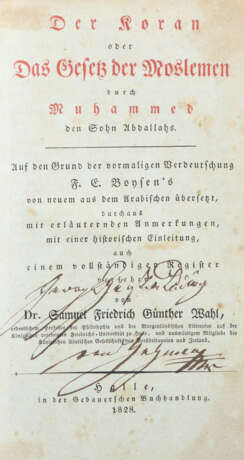 Der Koran
oder
Das Gesetz der Moslemen
durch
Muhammed
den Sohn Abdallahs.
Auf den Grund der vormaligen Verdeutschung
F. E. Boysen's
von neuem aus dem Arabischen übersetzt,
durchaus
mit erläuternden Anmerkungen,
mit einer historischen Einleitung,
auch
einem vollständigen Register
von
Dr. Samuel Friedrich Günther Wahl,
ordentlichem Professor der Philosophie und der Morgenländischen Litteratur auf der
Königlichen vereinten Friedrichs-Universität zu Halle, und auswärtigem Mitgliede der
Halle,
in der Gebauerschen Buchhandlung.
1828.